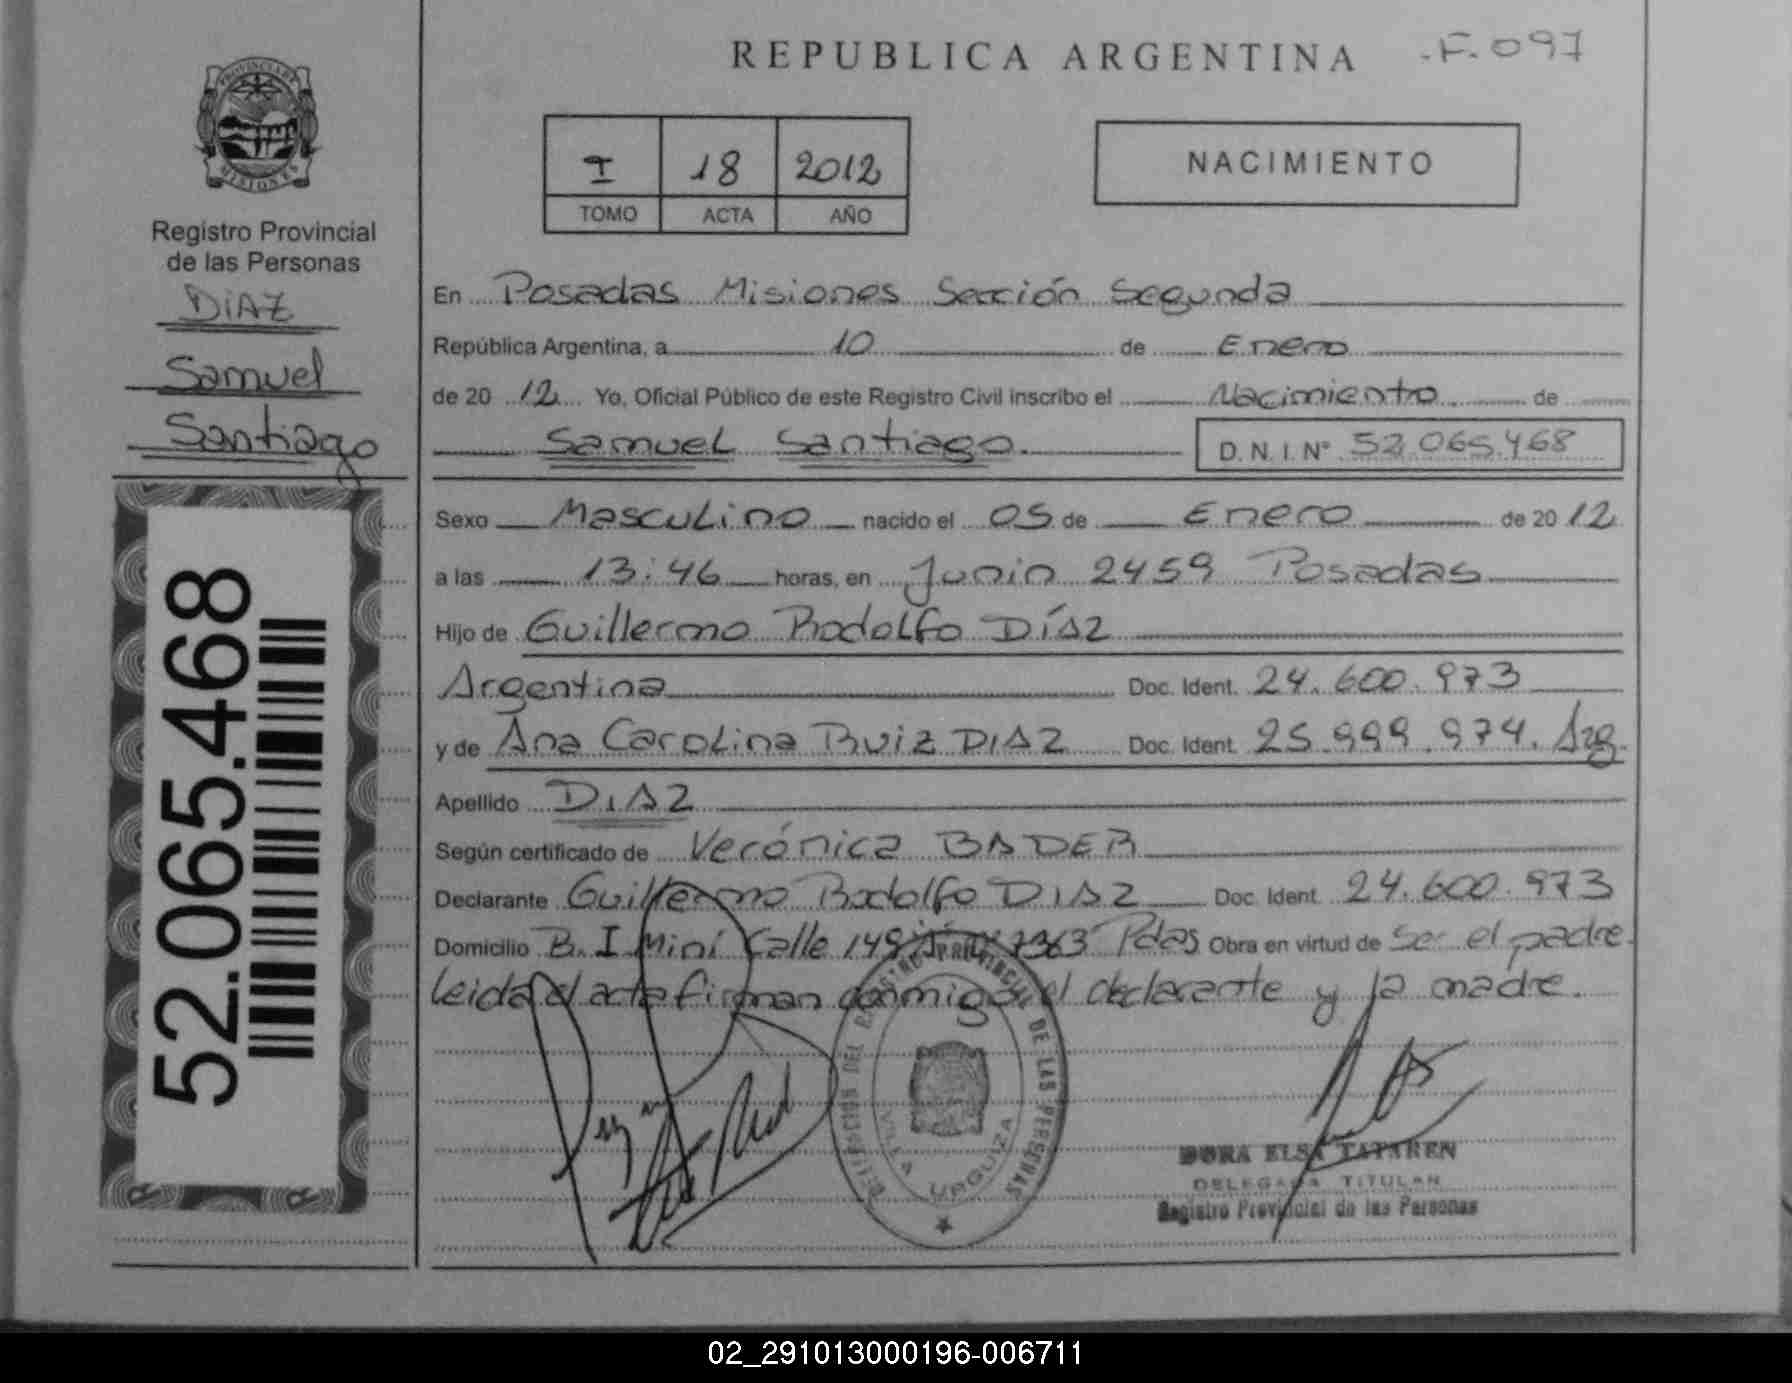 REPUBLICA ARGENTINA
F. 097
PROVINCIA DE
MISIONES
Registro Provincial
de las Personas
DiAZ
Samuel
Santiago
52.065.468
I 18 2012
TOMO ACTA AÑO
NACIMIENTO
En Posadas Misiones Sección Segunda
República Argentina, a 10 de Enero
de 20 12 Yo, Oficial Público de este Registro Civil inscribo el Nacimiento de
Samuel Santiago. D. N. I. Nº 52.065.468
Sexo Masculino nacido el 05 de Enero de 20 12
a las 13:46 horas, en Junin 2459 Posadas
Hijo de Guillermo Rodolfo DÍAZ
Argentina Doc. Ident. 24.600.973
y de Ana Carolina Ruiz DIAZ Doc. Ident. 25.999.974. Arg.
Apellido DiAZ
Según certificado de Verónica BADER
Declarante Guillermo Rodolfo DIAZ Doc. Ident. 24.600.973
Domicilio B. I Miní Calle 149 7363 Pdas Obra en virtud de Ser el padre
Leida el acta firman conmigo el declarante y la madre.
DELEGACION DEL REGISTRO PROVINCIAL DE LAS PERSONAS
VILLA URQUIZA
DORA ELSA TATAREN
DELEGADA TITULAR
Registro Provincial de las Personas
02_291013000196-006711